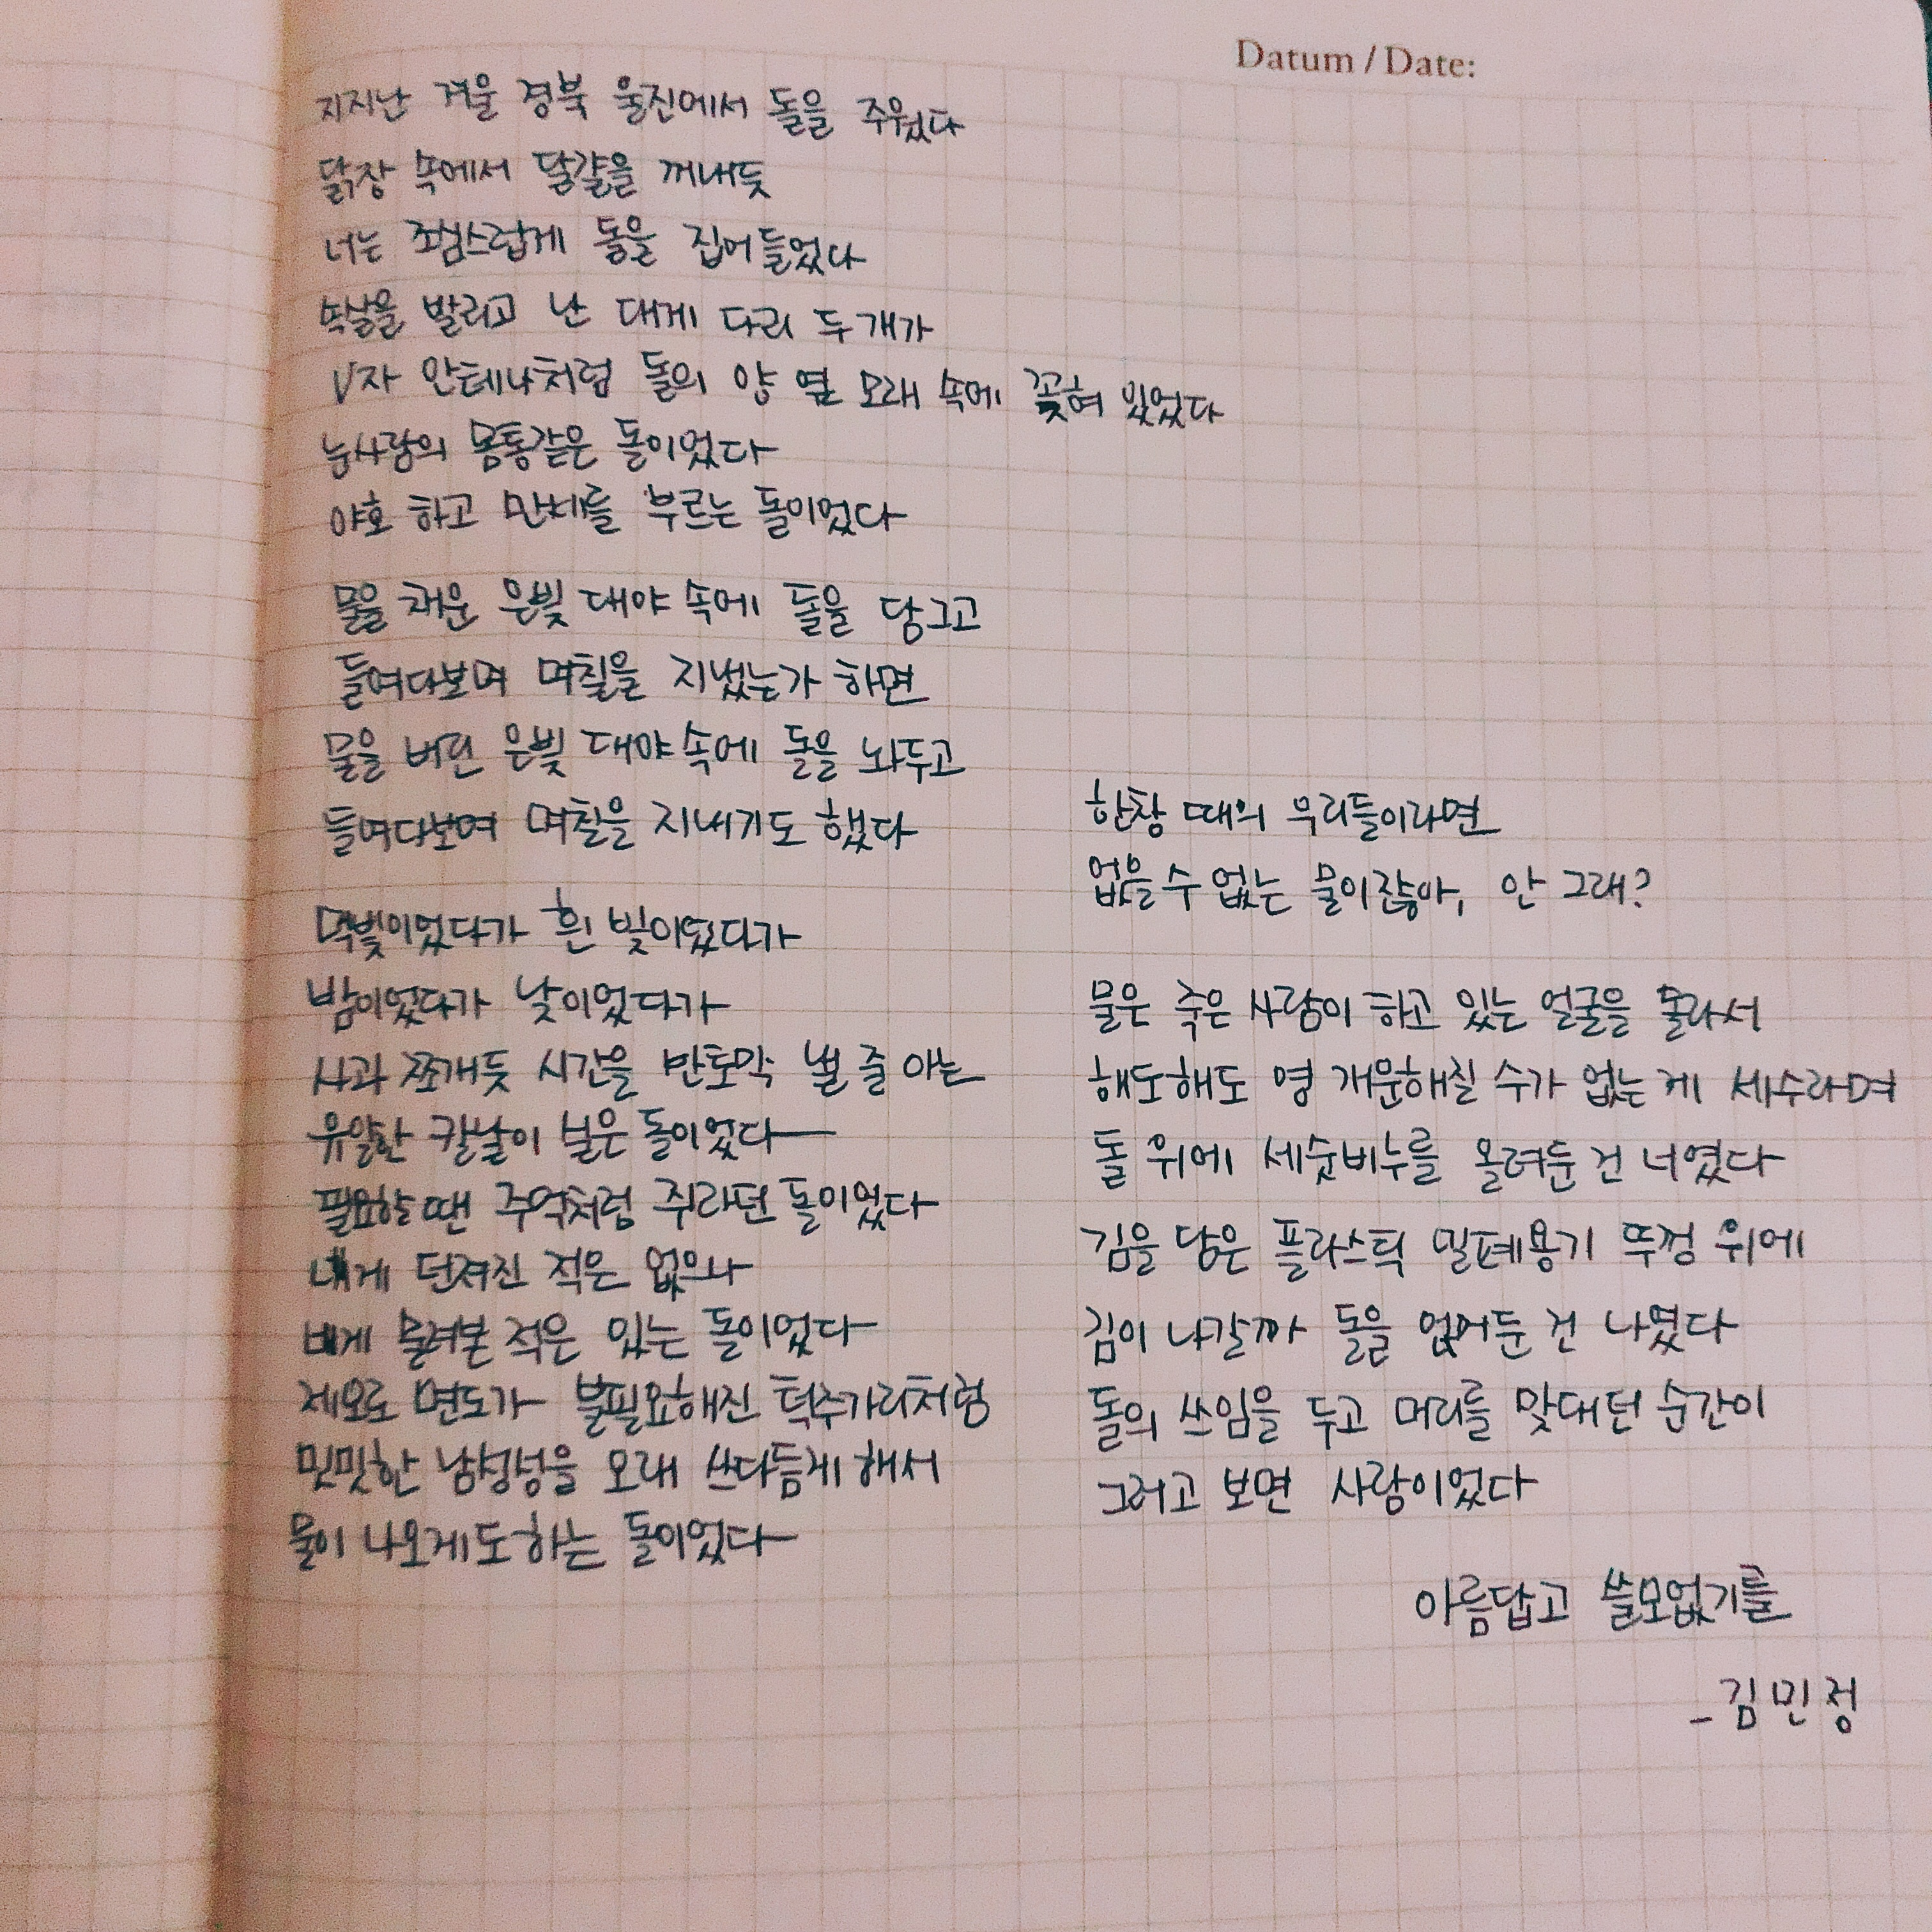 Datum / Date:
지지난 겨울 경북 울진에서 돌을 주웠다
닭장 속에서 달걀을 꺼내듯
너는 조심스럽게 돌을 집어들었다
속살을 발리고 난 대게 다리 두 개가
V자 안테나처럼 돌의 양 옆 모래 속에 꽂혀 있었다
눈사람의 몸통같은 돌이었다
야호 하고 만세를 부르는 돌이었다
물을 채운 은빛 대야 속에 돌을 담그고
들여다보며 며칠을 지냈는가 하면
물을 버린 은빛 대야 속에 돌을 놔두고
들여다보며 며칠을 지내기도 했다
먹빛이었다가 흰 빛이었다가
밤이었다가 낮이었다가
사과 쪼개듯 시간을 반토막 낼 줄 아는
유일한 칼날이 실은 돌이었다
필요할 땐 주먹처럼 쥐라던 돌이었다
네게 던져진 적은 없으나
네게 물려본 적은 있는 돌이었다
제모로 면도가 불필요해진 턱주가리처럼
밋밋한 남성성을 오래 쓰다듬게 해서
물이 나오게도 하는 돌이었다
한창 때의 우리들이라면
없을 수 없는 물이잖아, 안 그래?
물은 죽은 사람이 하고 있는 얼굴을 몰라서
해도해도 영 개운해질 수가 없는 게 세수라며
돌 위에 세숫비누를 올려둔 건 너였다
김을 담은 플라스틱 밀폐용기 뚜껑 위에
김이 나갈까 돌을 얹어둔 건 나였다
돌의 쓰임을 두고 머리를 맞대던 순간이
그러고 보면 사랑이었다
아름답고 쓸모없기를
- 김민정